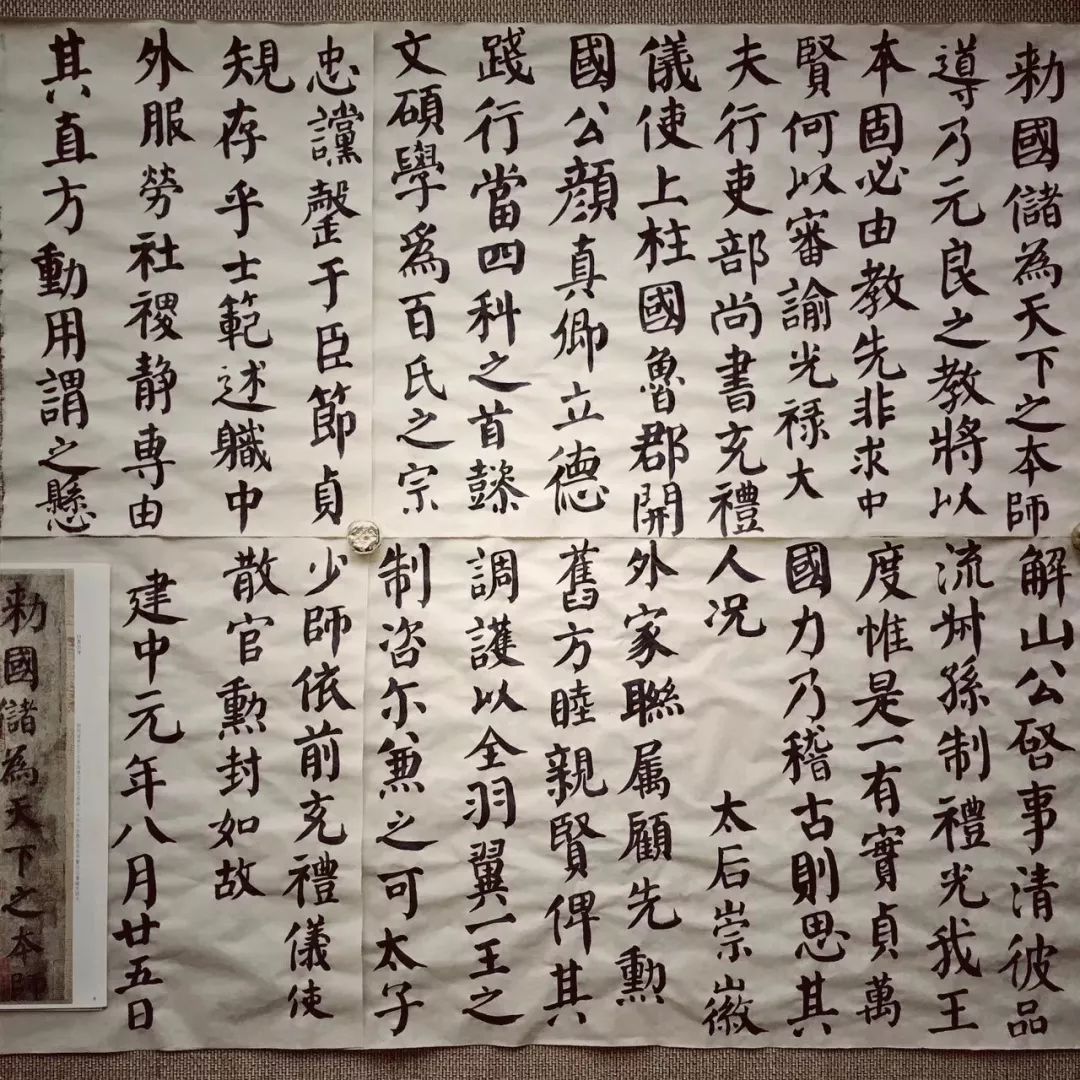 勅國儲為天下之本師
導乃元良之教將以
本固必由教先非求中
賢何以審諭光禄大
夫行吏部尚書充禮
儀使上柱國魯郡開
國公顔真卿立德
踐行當四科之首懿
文碩學為百氏之宗
忠讜罄于臣節貞
規存乎士範述職中
外服勞社稷静專由
其直方動用謂之懸
解山公啓事清彼品
流叔孫制禮光我王
度惟是一有實貞萬
國力乃稽古則思其
人况 太后崇徽
外家聯属顧先勲
舊方睦親賢俾其
調護以全羽翼一王之
制咨尔兼之可太子
少師依前充禮儀使
散官勲封如故
建中元年八月廿五日
勅國儲為天下之本師